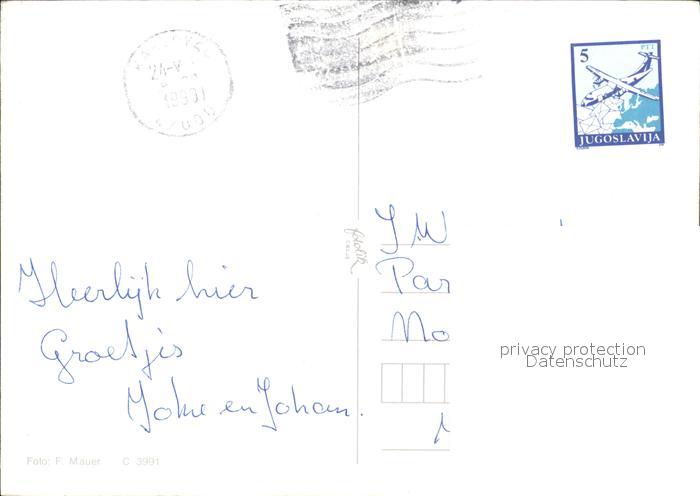 24-V
1990
5
PTT
JUGOSLAVIJA
Heerlijk hier
Groetjes
en Johan.
fotolik
CELJE
J.W
Par
Mo
privacy protection
Datenschutz
Foto: F. Mauer C 3991